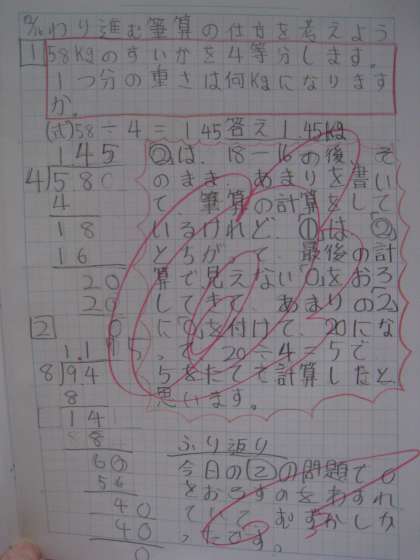 わり進む筆算の仕方を考えよう
1 5.8Kgのすいかを4等分します。
1つ分の重さは何Kgになります
か。
(式)5.8÷4=1.45 答え1.45kg
1.45
4)5.80
4
18
16
20
20
0
②は、18-16の後、そ
のまま、あまりを書い
て、筆算の計算をして
いるけれど、①は、②
とちがって、最後の計
算で見えない「0」をおろ
してきて、あまりの「2」
に「0」を付けて、20にな
って、20÷4=5で
5をたてて計算したと
思います。
2
1.175
8)9.4
8
14
8
60
56
40
40
0
ふり返り
今日の②の問題で0
をおろすのをわすれ
ていて、むずかしか
ったです。